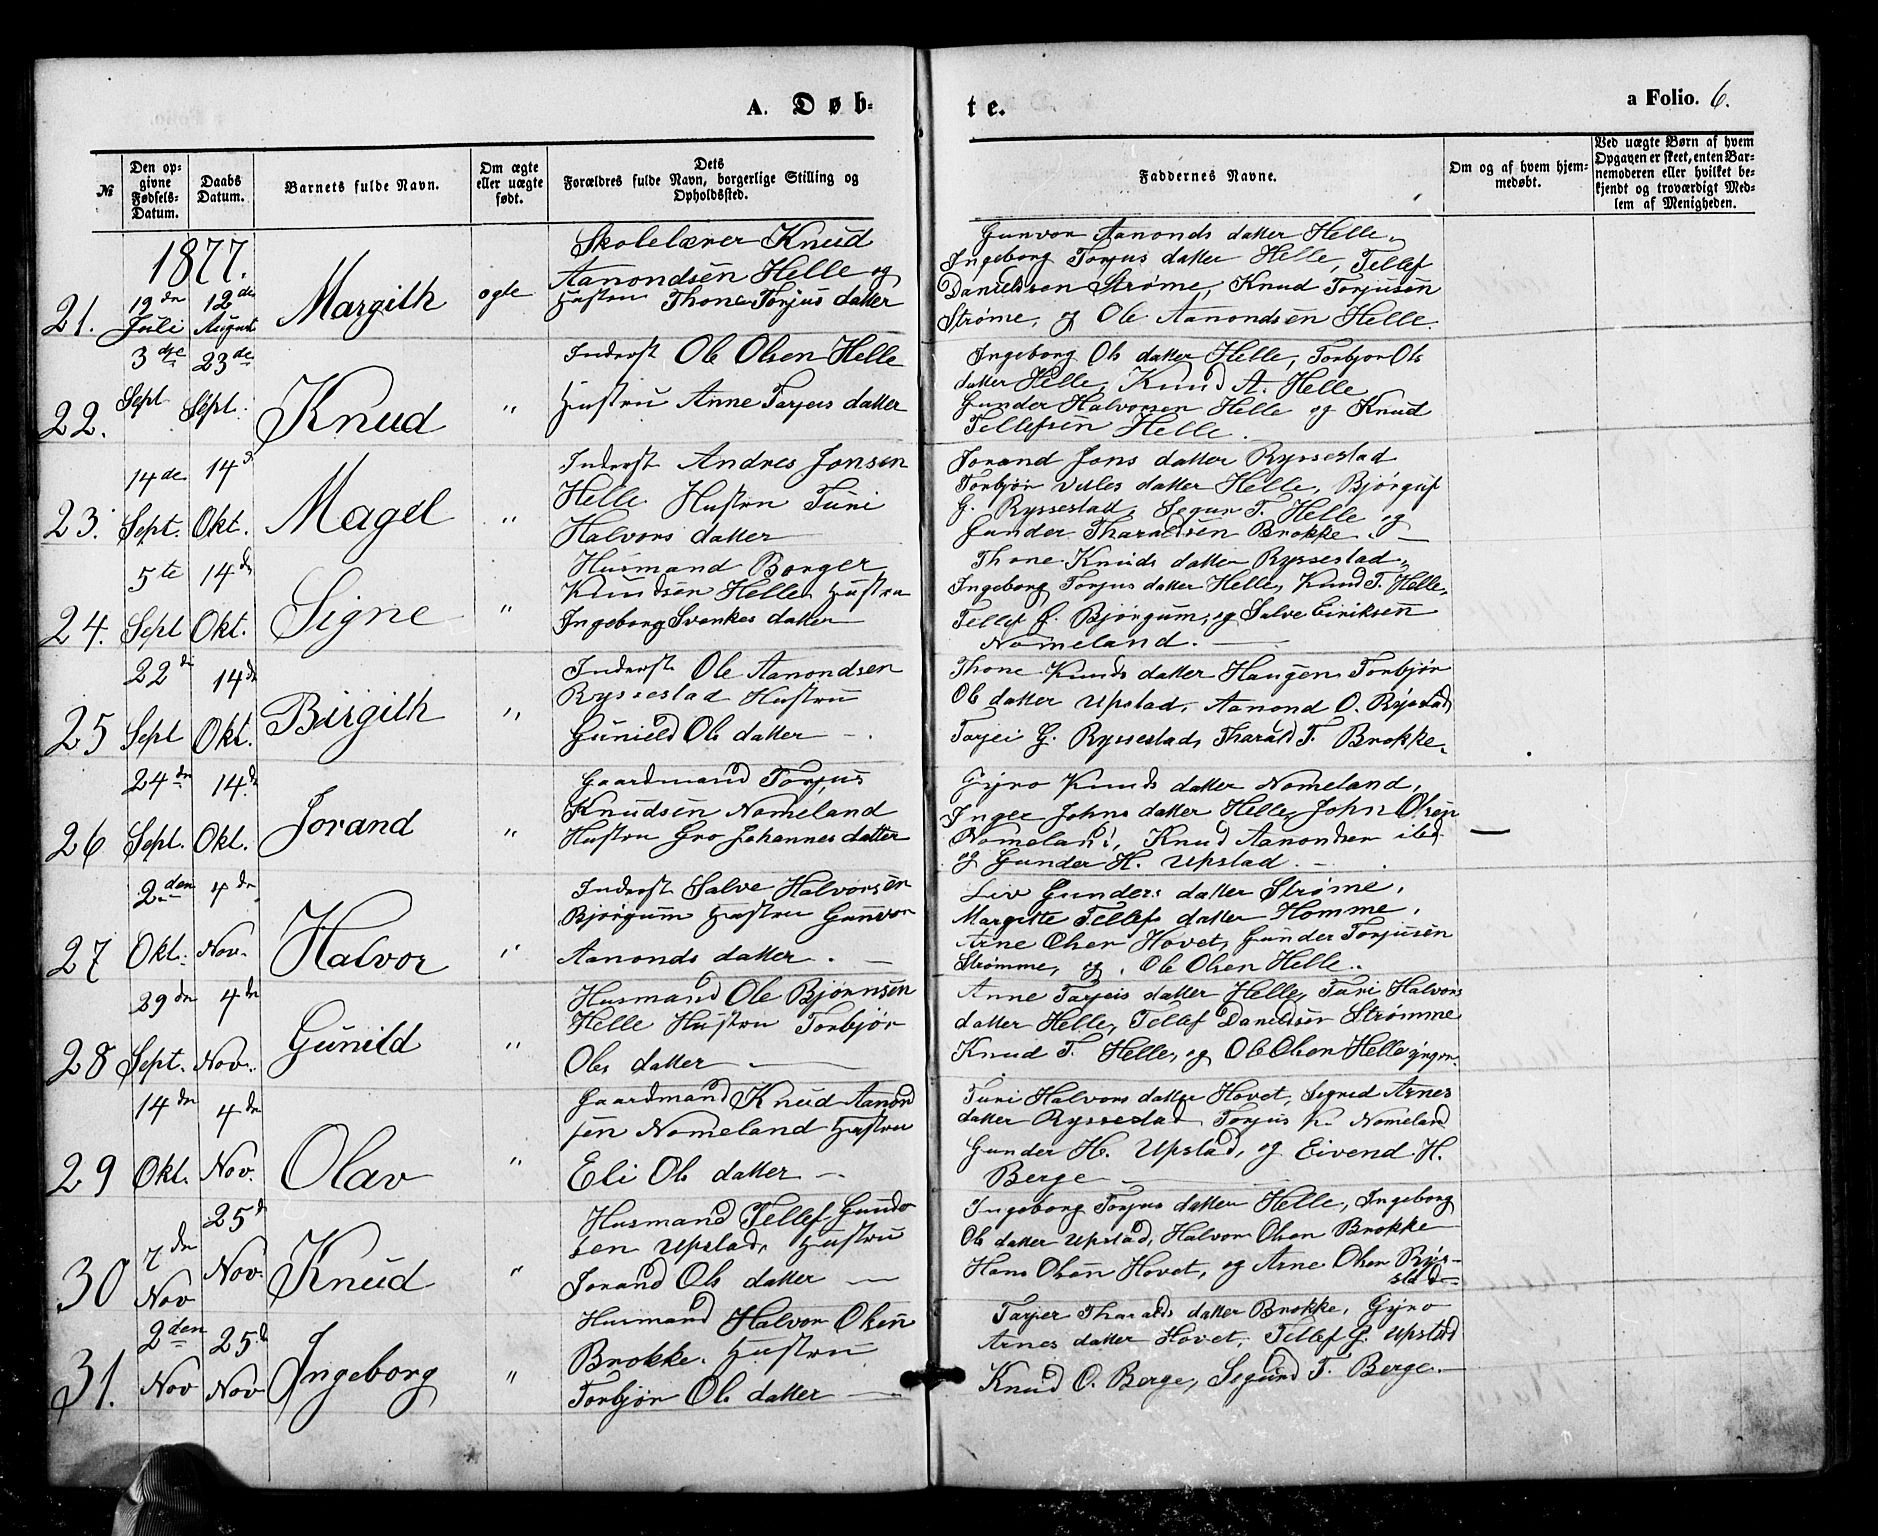 A. Døb-
te.
a Folio. 6.
№
Den op-
givne
Fødsels-
Datum.
Daabs
Datum.
Barnets fulde Navn.
Om ægte
eller uægte
født.
Dets
Forældres fulde Navn, borgerlige Stilling og
Opholdssted.
Faddernes Navne.
Om og af hvem hjem-
medøbt.
Ved uægte Børn af hvem
Opgaven er skeet, enten Bar-
nemoderen eller hvilket be-
kjendt og troværdigt Med-
lem af Menigheden.
1877.
21.
19de
Juli
12de
August
Margith
ægte
Skolelærer Knud
Aanondsen Helle og
Hustru Thone Torjus datter
Gunvor Aanonds datter Helle,
Ingeborg Torjus datter Helle, Tellef
Danielssen Strøme, Knud Torjusen
Strøme, og Ole Aanondsen Helle.
22.
3die
Sept
23de
Sept.
Knud
"
Inderst Ole Olsen Helle
Hustru Anne Tarjeis datter
Ingeborg Ols datter Helle, Torbjør Ols
datter Helle, Knud A. Helle
Gunder Halvorsen Helle og Knud
Tellefsen Helle.
23.
14de
Sept.
14d
Okt.
Magel
"
Inderst Andres Jonsen
Helle Hustru Turi
Halvors datter
Jorand Jons datter Ryssestad
Torbjør datter Helle, Bjørguf
G. Ryssestad, Segur T. Helle og
Gunder Tharaldsen Brokke.
24.
5te
Sept
14de
Okt.
Signe
"
Husmand Borger
Knudsen Helle, Hustru
Ingeborg Svenkes datter
Thone Knuds datter Ryssestad,
Ingeborg Torjus datter Helle, Knud T. Helle,
Tellef G. Bjørgum, og Salve Eiriksen
Nomeland.
25
22d
Sept
14de
Okt.
Birgith
"
Inderst Ole Aanondsen
Ryssestad Hustru
Gunield Ols datter
Thone Knuds datter Haugen, Torbjør
Ols datter Upstad, Aanond O. Rysstad,
Tarjei G. Ryssestad, Tharald T. Brokke,
26
24de
Sept.
14d
Okt.
Jorand
"
Gaardmand Torjus
Knudsen Nomeland
Hustru Gro Johannes datter
Gyro Knuds datter Nomeland,
Inger Johns datter Helle, John Olsen
Nomeland, Knud Aanondsen ibd.
og Gunder H. Upstad.
27
2den
Okt.
4de
Nov.
Halvor
"
Inderst Salve Halvorsen
Bjørgum Hustru Gunvor
Aanonds datter.
Liv Gunders datter Strøme,
Margitte Tellefs datter Homme,
Arne Olsen Hovet, Gunder Torjusen
Strømme, og Ole Olsen Helle.
28
29de
Sept.
4de
Nov.
Gunild
"
Husmand Ole Bjørnsen
Helle Hustru Torbjør
Ols datter
Anne Tarjeis datter Helle, Turi Halvors
datter Helle, Tellef Danielsen Strømme
Knud T. Helle, og Ole Olsen Helle
29
14de
Okt.
4de
Nov.
Olav
"
Gaardmand Knud Aanond
sen Nomeland Hustru
Eli Ols datter
Turi Halvors datter Hovet, Sigrid Arnes
datter Ryssestad Torjus K. Nomeland
Gunder H. Upstad, og Eivend H.
Berge
30
7de
Nov
25d
Nov.
Knud
"
Husmand Tellef Gunder
sen Upstad, Hustru
Jorand Ols datter
Ingeborg Torjus datter Helle, Ingeborg
Ols datter Upstad, Halvor Olsen Brokke
Hans Olsen Hovet, og Arne Olsen Rys-
stad
31.
2den
Nov
25d
Nov
Ingeborg
"
Husmand Halvor Olsen
Brokke, Hustru
Torbjør Ols datter
Tharalds datter Brokke, Gyro
Arnes datter Hovet, Tellef G. Upstad
Knud O. Berge, Sigurd T. Berge.